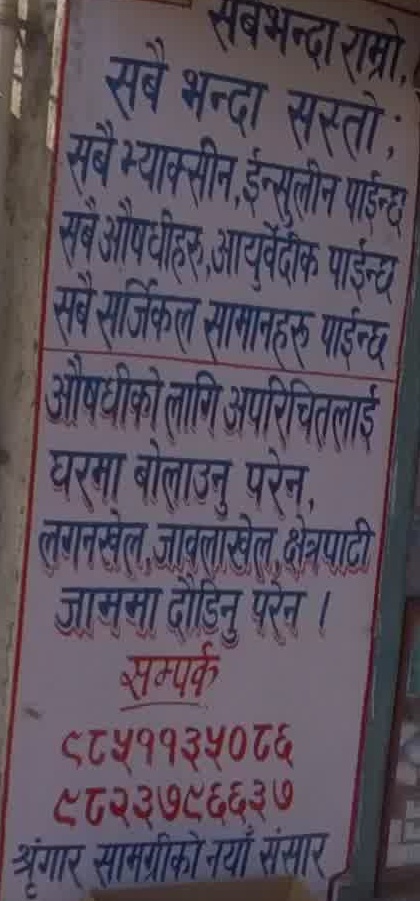 सबभन्दा राम्रो,
सबै भन्दा सस्तो;
सबै भ्याक्सीन, ईन्सुलीन पाईन्छ
सबै औषधीहरु, आयुर्वेदीक पाईन्छ
सबै सर्जिकल सामानहरु पाईन्छ
औषधीको लागि अपरिचितलाई
घरमा बोलाउनु परेन,
लगनखेल, जावलाखेल, क्षेत्रपाटी
जाममा दौडिनु परेन ।
सम्पर्क
९८५११३५०८६
९८२३७९६६३७
श्रृंगार सामग्रीको नयाँ संसार